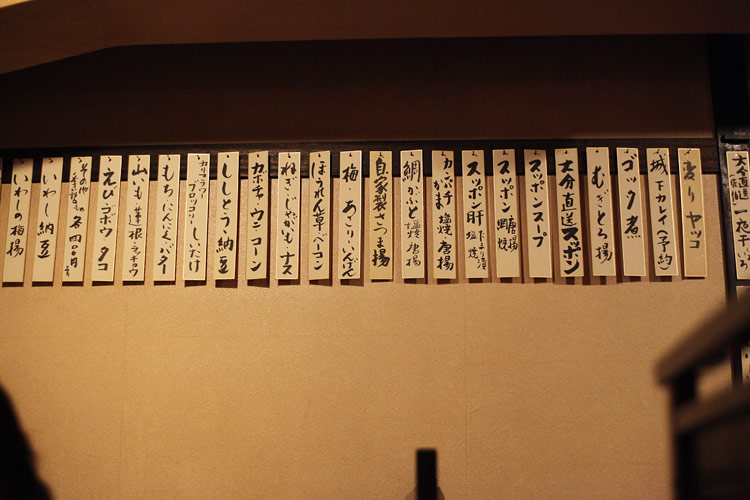 大分直送
一夜干いろ
変りヤッコ
城下カレイ(予約)
ゴック煮
むぎとろ揚
大分直送スッポン
スッポンスープ
スッポン 唐揚 網焼
スッポン肝 塩焼
カンパチかま 塩焼 唐揚
鯛かぶと 塩焼 唐揚
自家製さつま揚
梅・あさり・いんげん
ほうれん草ベーコン
ねぎ・じゃがいも ナス
カボチャ ウニ コーン
ししとう 納豆
カリフラワー ブロッコリー しいたけ
もち にんにくバター
山いも 蓮根 ラッキョウ
えび ゴボウ タコ
その他 各四〇〇円
いわし納豆
いわしの梅揚